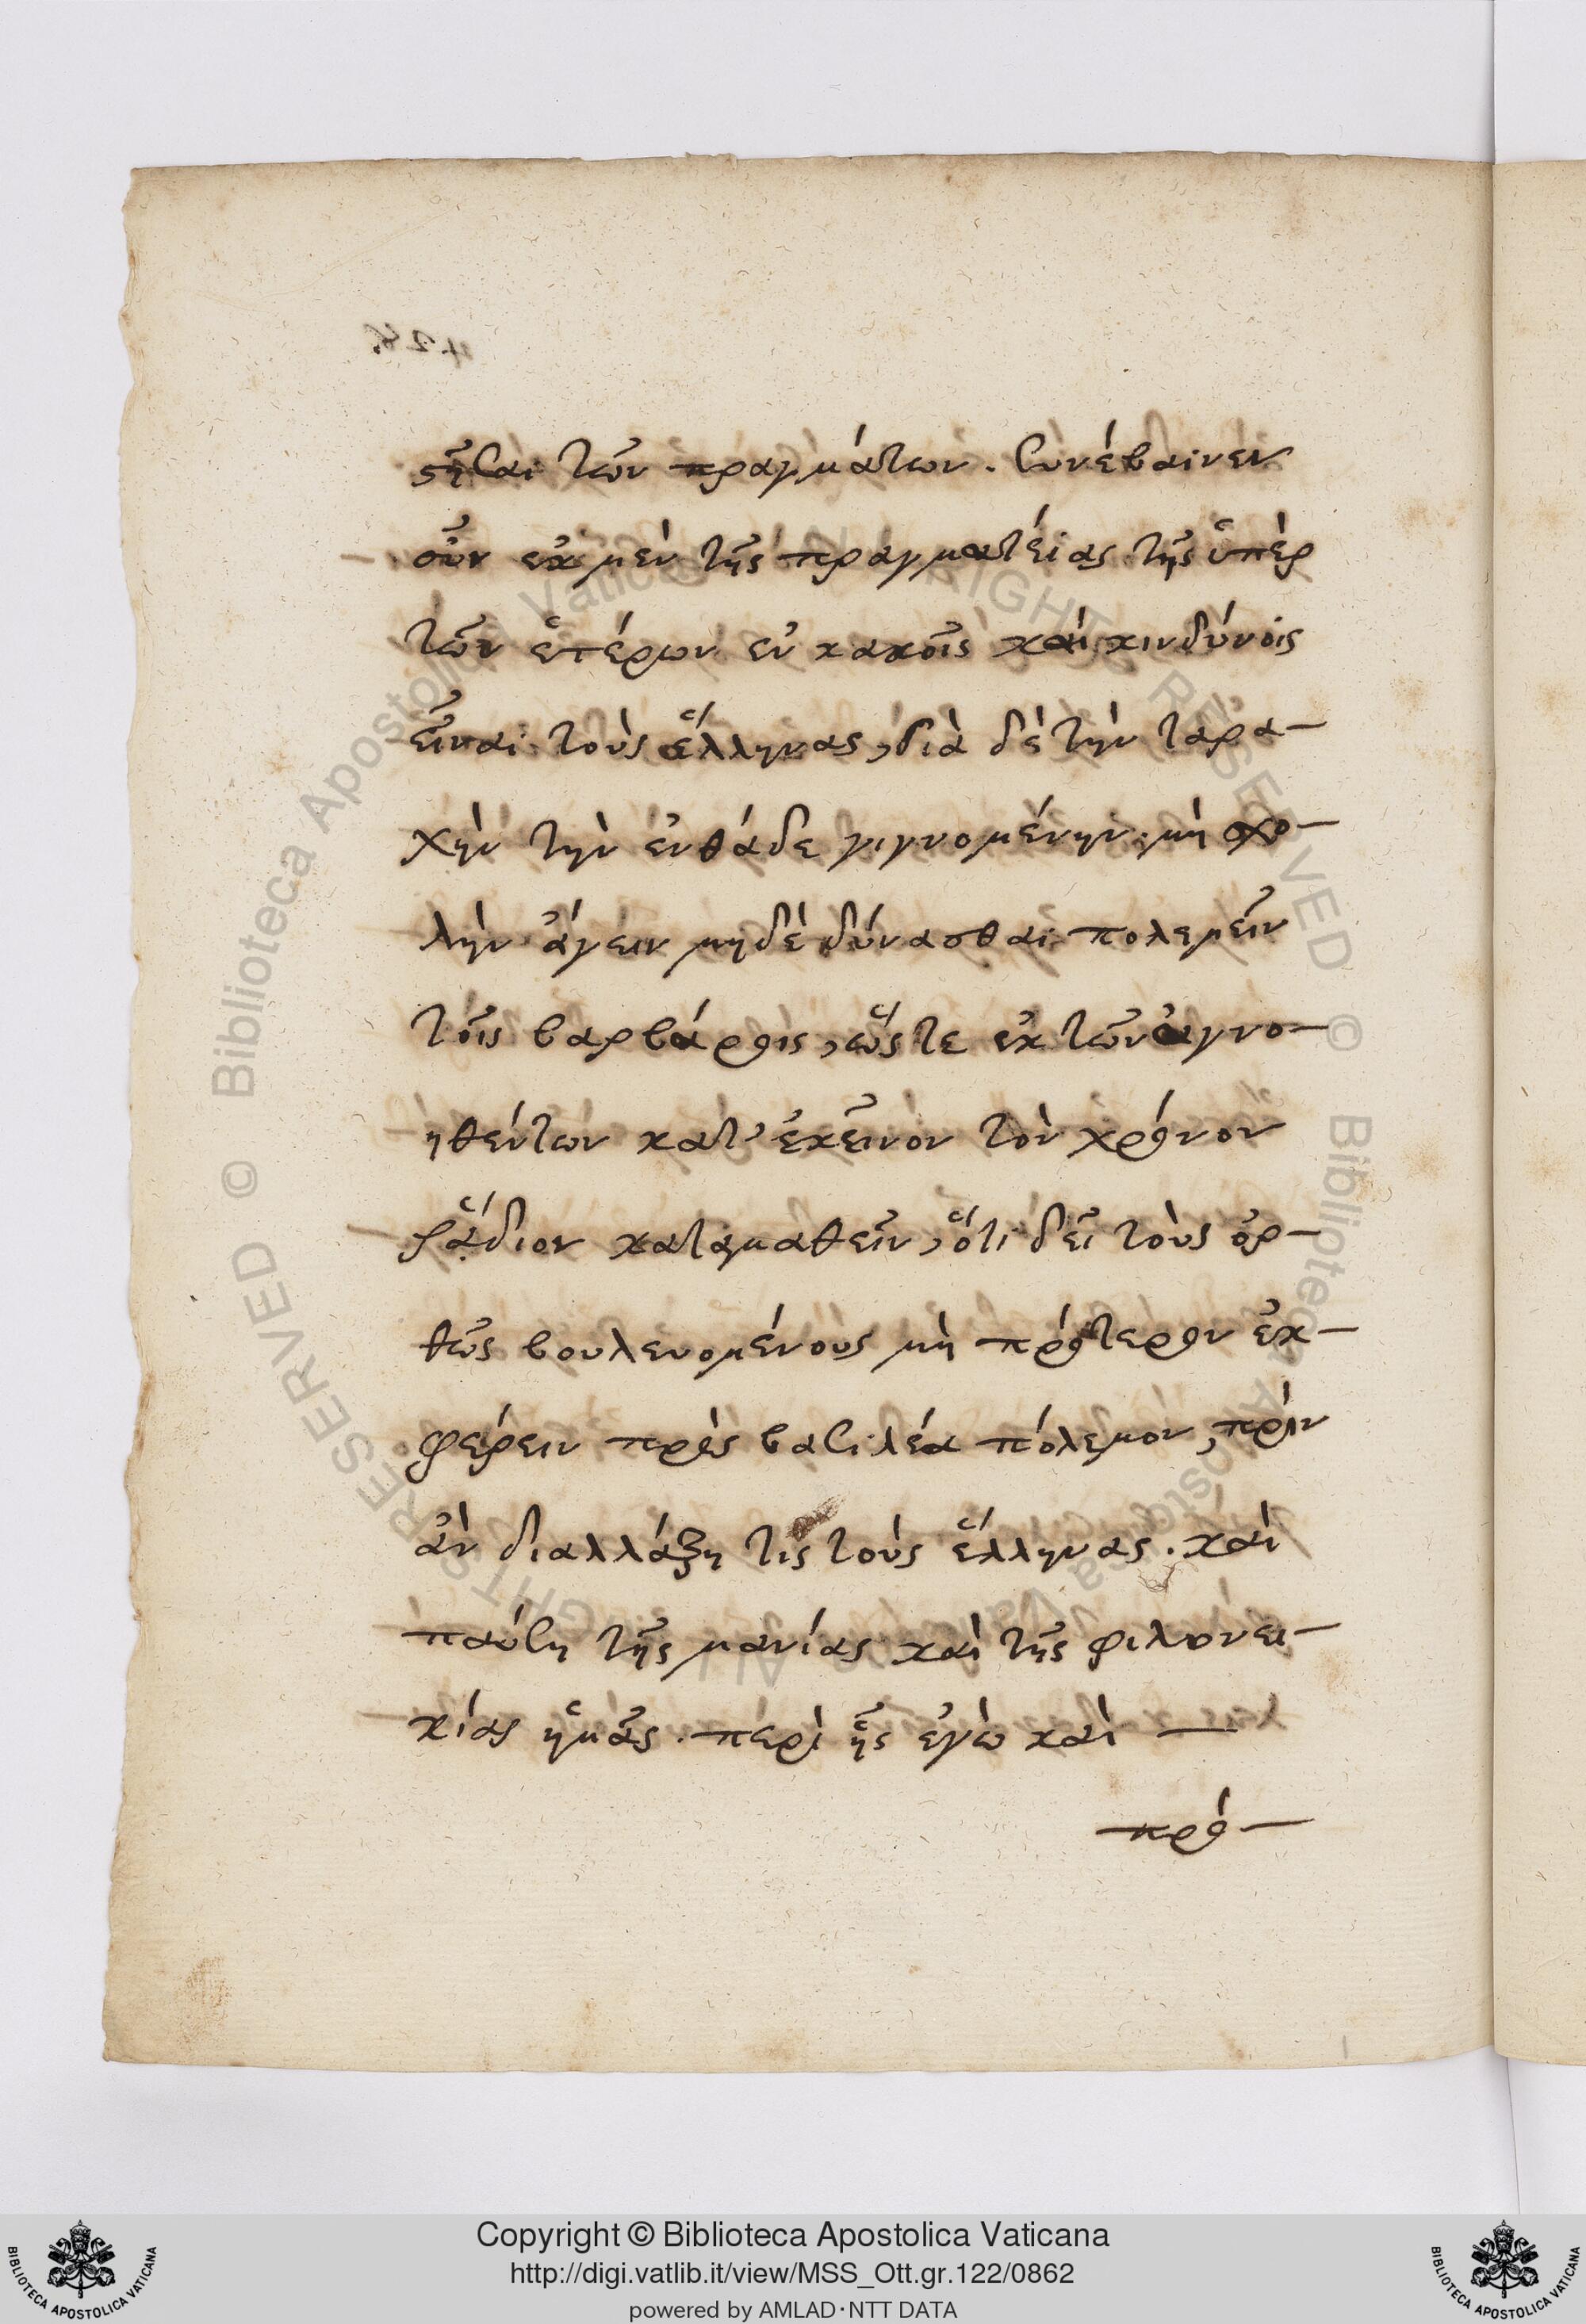 στῆσαι τῶν πραγμάτων. συνέβαινεν
οὖν ἐκ μὲν τῆς πραγματείας τῆς ὑπὲρ
τῶν ἑτέρων ἐν κακοῖς καὶ κινδύνοις
εἶναι τοὺς ἕλληνας, διὰ δὲ τὴν ταρα-
χὴν τὴν ἐνθάδε γιγνομένην. μὴ σχο-
λὴν ἄγειν μηδὲ δύνασθαι πολεμεῖν
τοῖς βαρβάροις, ὥστε ἐκ τῶν ἀγνο-
ηθέντων κατ' ἐκεῖνον τὸν χρόνον
ῥᾴδιον καταμαθεῖν, ὅτι δεῖ τοὺς ὀρ-
θῶς βουλευομένους μὴ πρότερον ἐκ-
φέρειν πρὸς βασιλέα πόλεμον, πρὶν
ἂν διαλλάξη τις τοὺς ἕλληνας. καὶ
παύση τῆς μανίας καὶ τῆς φιλονει-
κίας ἡμᾶς. περὶ ἧς ἐγὼ καὶ —
πρό-
Copyright © Biblioteca Apostolica Vaticana
http://digi.vatlib.it/view/MSS_Ott.gr.122/0862
powered by AMLAD·NTT DATA
BIBLIOTECA APOSTOLICA VATICANA
BIBLIOTECA APOSTOLICA VATICANA
© Biblioteca Apostolica Vaticana ALL RIGHTS RESERVED © Biblioteca Apostolica Vaticana ALL RIGHTS RESERVED